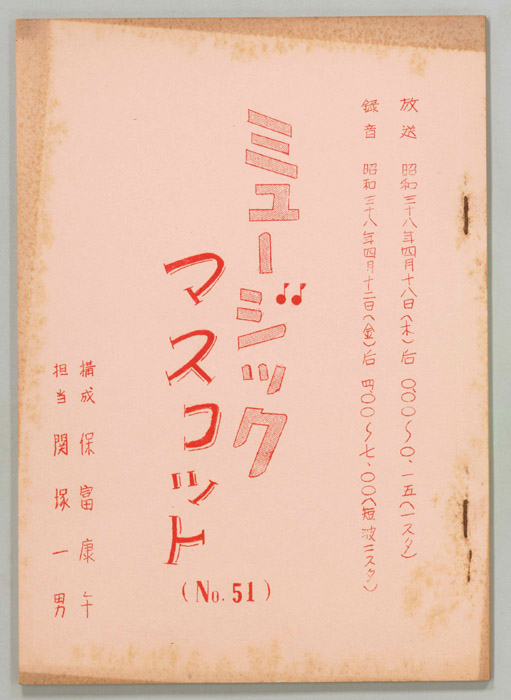 放送 昭和三十八年四月十八日(木)后 〇.〇〇〜〇.一五(一スタ)
録音 昭和三十八年四月十二日(金)后 四.〇〇〜七.〇〇(短波二スタ)
ミュージック
マスコット
(No. 51)
構成 保富康午
担当 関塚一男